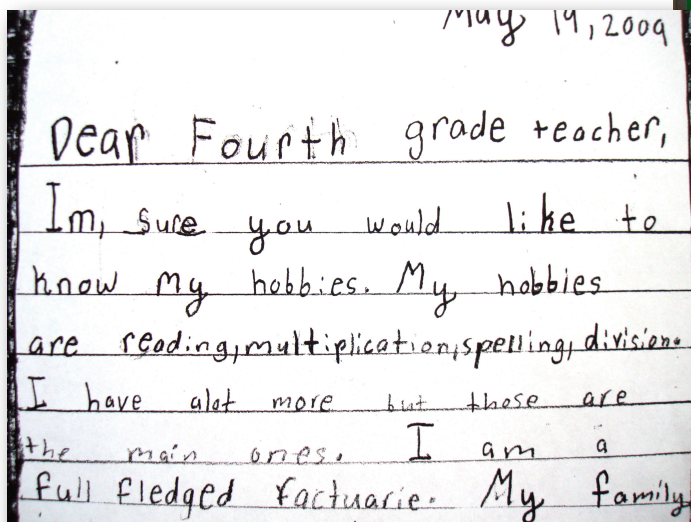 May 19, 2009
Dear Fourth grade teacher,
Im, sure you would like to
know my hobbies. My hobbies
are reading, multiplication, spelling, division.
I have alot more but those are
the main ones. I am a
full fledged factuarie. My family